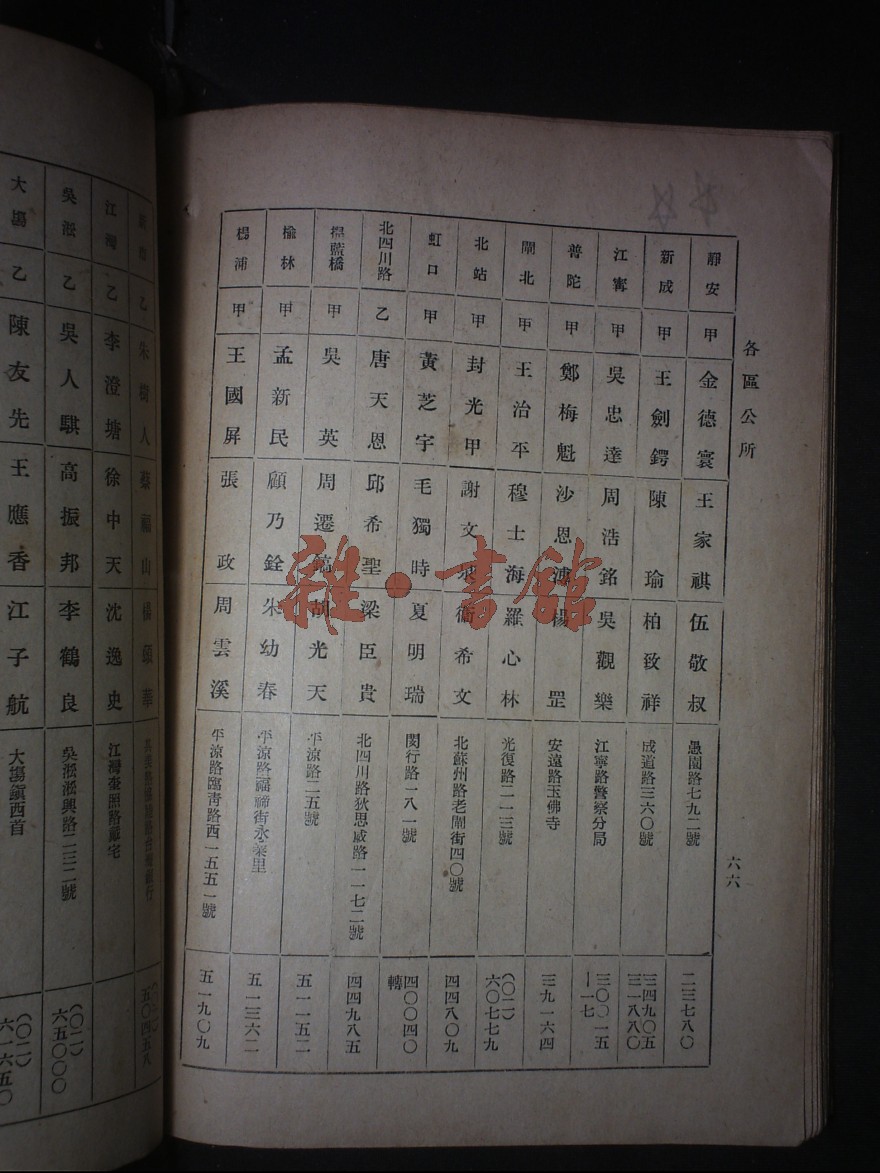 各區公所
六六
靜安 甲 金德寰 王家祺 伍敬叔 愚園路七九二號 二三七八〇
新成 甲 王劍鍔 陳瑜 柏致祥 成道路三六〇號 三四九〇五 三一八八〇
江寗 甲 吳忠達 周浩銘 吳觀樂 江寧路警察分局 三〇〇一五 一一七
普陀 甲 鄭梅魁 沙恩溥 楊罡 安遠路玉佛寺 三九一六四
閘北 甲 王治平 穆士海 羅心林 光復路二一三號 (〇二) 六〇七七九
北站 甲 封光甲 謝文 衞希文 北蘇州路老閘街四〇號 四四八〇九
虹口 甲 黃芝宇 毛獨時 夏明瑞 閔行路一八一號 四〇〇四〇 轉
北四川路 乙 唐天恩 邱希聖 梁臣貴 北四川路狄思威路一一七二號 四四九八五
提藍橋 甲 吳英 周遷鎬 胡光天 平涼路二五號 五一一五二
榆林 甲 孟新民 顧乃銓 朱幼春 平涼路福禘街永業里 五一三六二
楊浦 甲 王國屏 張政 周雲溪 平涼路臨靑路西一五五一號 五一九〇九
雜·書館
新市 乙 朱樹人 蔡福山 楊碩華 五〇四五八
江灣 乙 李澄塘 徐中天 沈逸史 江灣奎照路嚴宅
吳淞 乙 吳人騏 高振邦 李鶴良 吳淞淞興路二三二號 (〇二) 六五〇〇〇
大塲 乙 陳友先 王應香 江子航 大塲鎭西首 (〇二) 六一六五〇